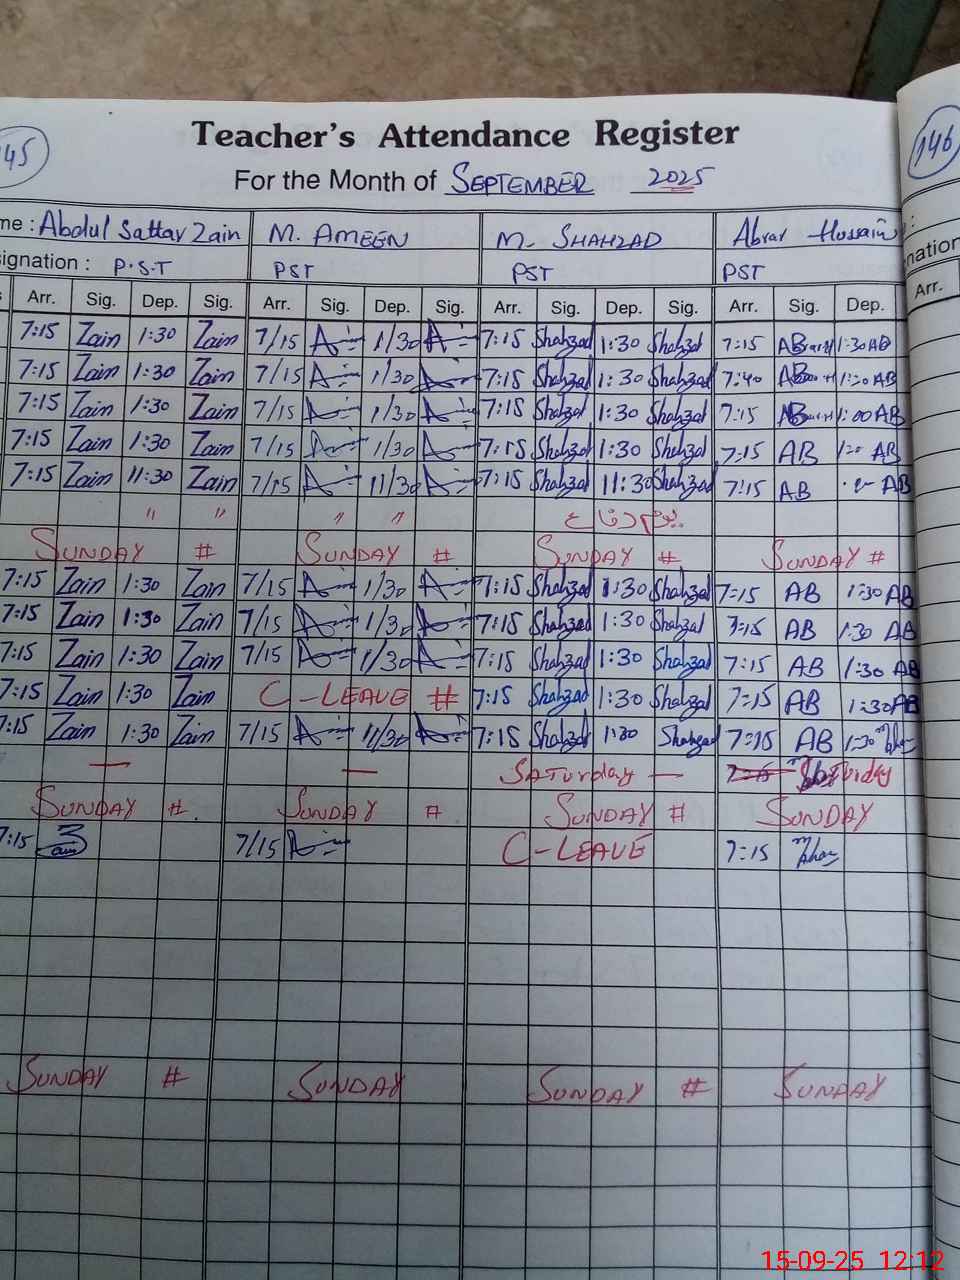 145
Teacher's Attendance Register
146
For the Month of SEPTEMBER 2025
me : Abdul Sattar Zain M. AMEEN M. SHAHZAD Abrar Hussain
signation : P.S.T PST PST PST nation
Arr. Sig. Dep. Sig. Arr. Sig. Dep. Sig. Arr. Sig. Dep. Sig. Arr. Sig. Dep. Arr.
7:15 Zain 1:30 Zain 7/15 1/30 7:15 Shahzad 1:30 Shahzad 7:15 1:30 AB
7:15 Zain 1:30 Zain 7/15 1/30 7:15 Shahzad 1:30 Shahzad 7:40 AB
7:15 Zain 1:30 Zain 7/15 1/30 7:15 Shahzad 1:30 Shahzad 7:15 1:00 AB
7:15 Zain 1:30 Zain 7/15 1/30 7:15 Shahzad 1:30 Shahzad 7:15 AB AB
7:15 Zain 11:30 Zain 7/15 11/30 7:15 Shahzad 11:30 Shahzad 7:15 AB AB
" " " " یوم دفاع
SUNDAY # SUNDAY # SUNDAY # SUNDAY #
7:15 Zain 1:30 Zain 7/15 1/30 7:15 Shahzad 1:30 Shahzad 7:15 AB 1:30 AB
7:15 Zain 1:30 Zain 7/15 1/30 7:15 Shahzad 1:30 Shahzad 7:15 AB 1:30 AB
7:15 Zain 1:30 Zain 7/15 1/30 7:15 Shahzad 1:30 Shahzad 7:15 AB 1:30 AB
7:15 Zain 1:30 Zain C-LEAVE # 7:15 Shahzad 1:30 Shahzad 7:15 AB 1:30 AB
7:15 Zain 1:30 Zain 7/15 11/30 7:15 Shahzad 1:30 Shahzad 7:15 AB 1:30
— — SATURDAY —
SUNDAY # SUNDAY # SUNDAY # SUNDAY
7:15 7/15 C-LEAVE 7:15
SUNDAY # SUNDAY SUNDAY # SUNDAY
15-09-25 12:12